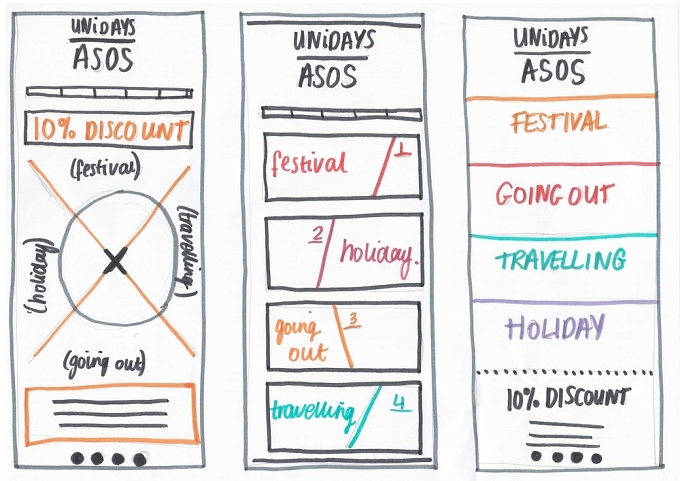 UNiDAYS
ASOS
10% DISCOUNT
(festival)
(holiday)
(travelling)
(going out)
UNiDAYS
ASOS
festival 1
2 holiday.
going 3
out
travelling 4
UNiDAYS
ASOS
FESTIVAL
GOING OUT
TRAVELLING
HOLIDAY
10% DISCOUNT